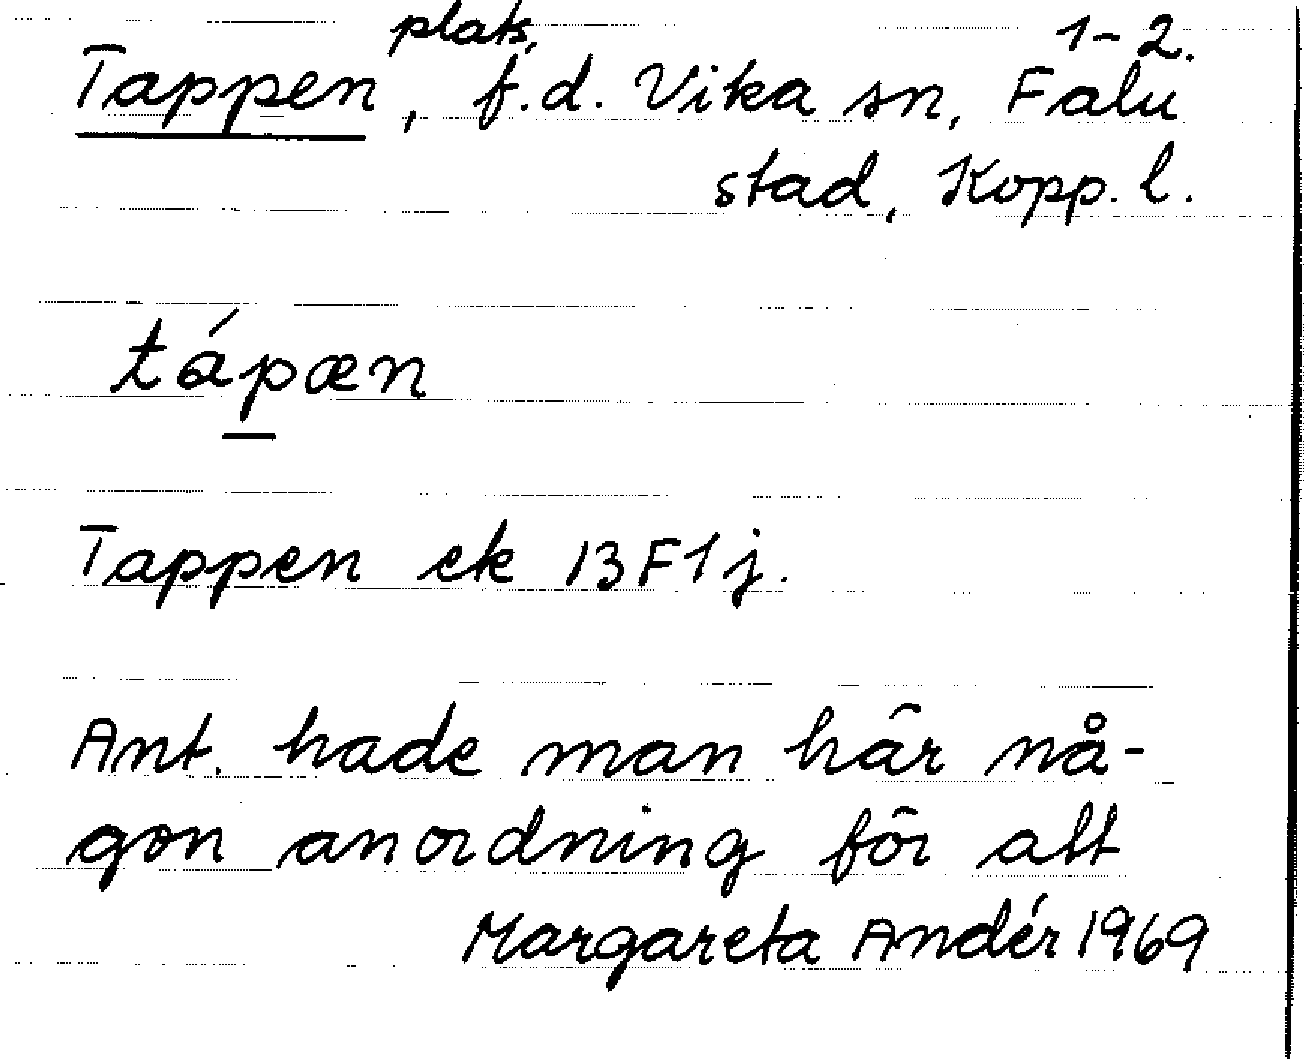 plats, 1-2.
Tappen, f.d. Vika sn, Falu
stad, Kopp. l.
tápæn
Tappen ek 13F1j.
Ant. hade man här nå-
gon anordning för att
Margareta Andér 1969